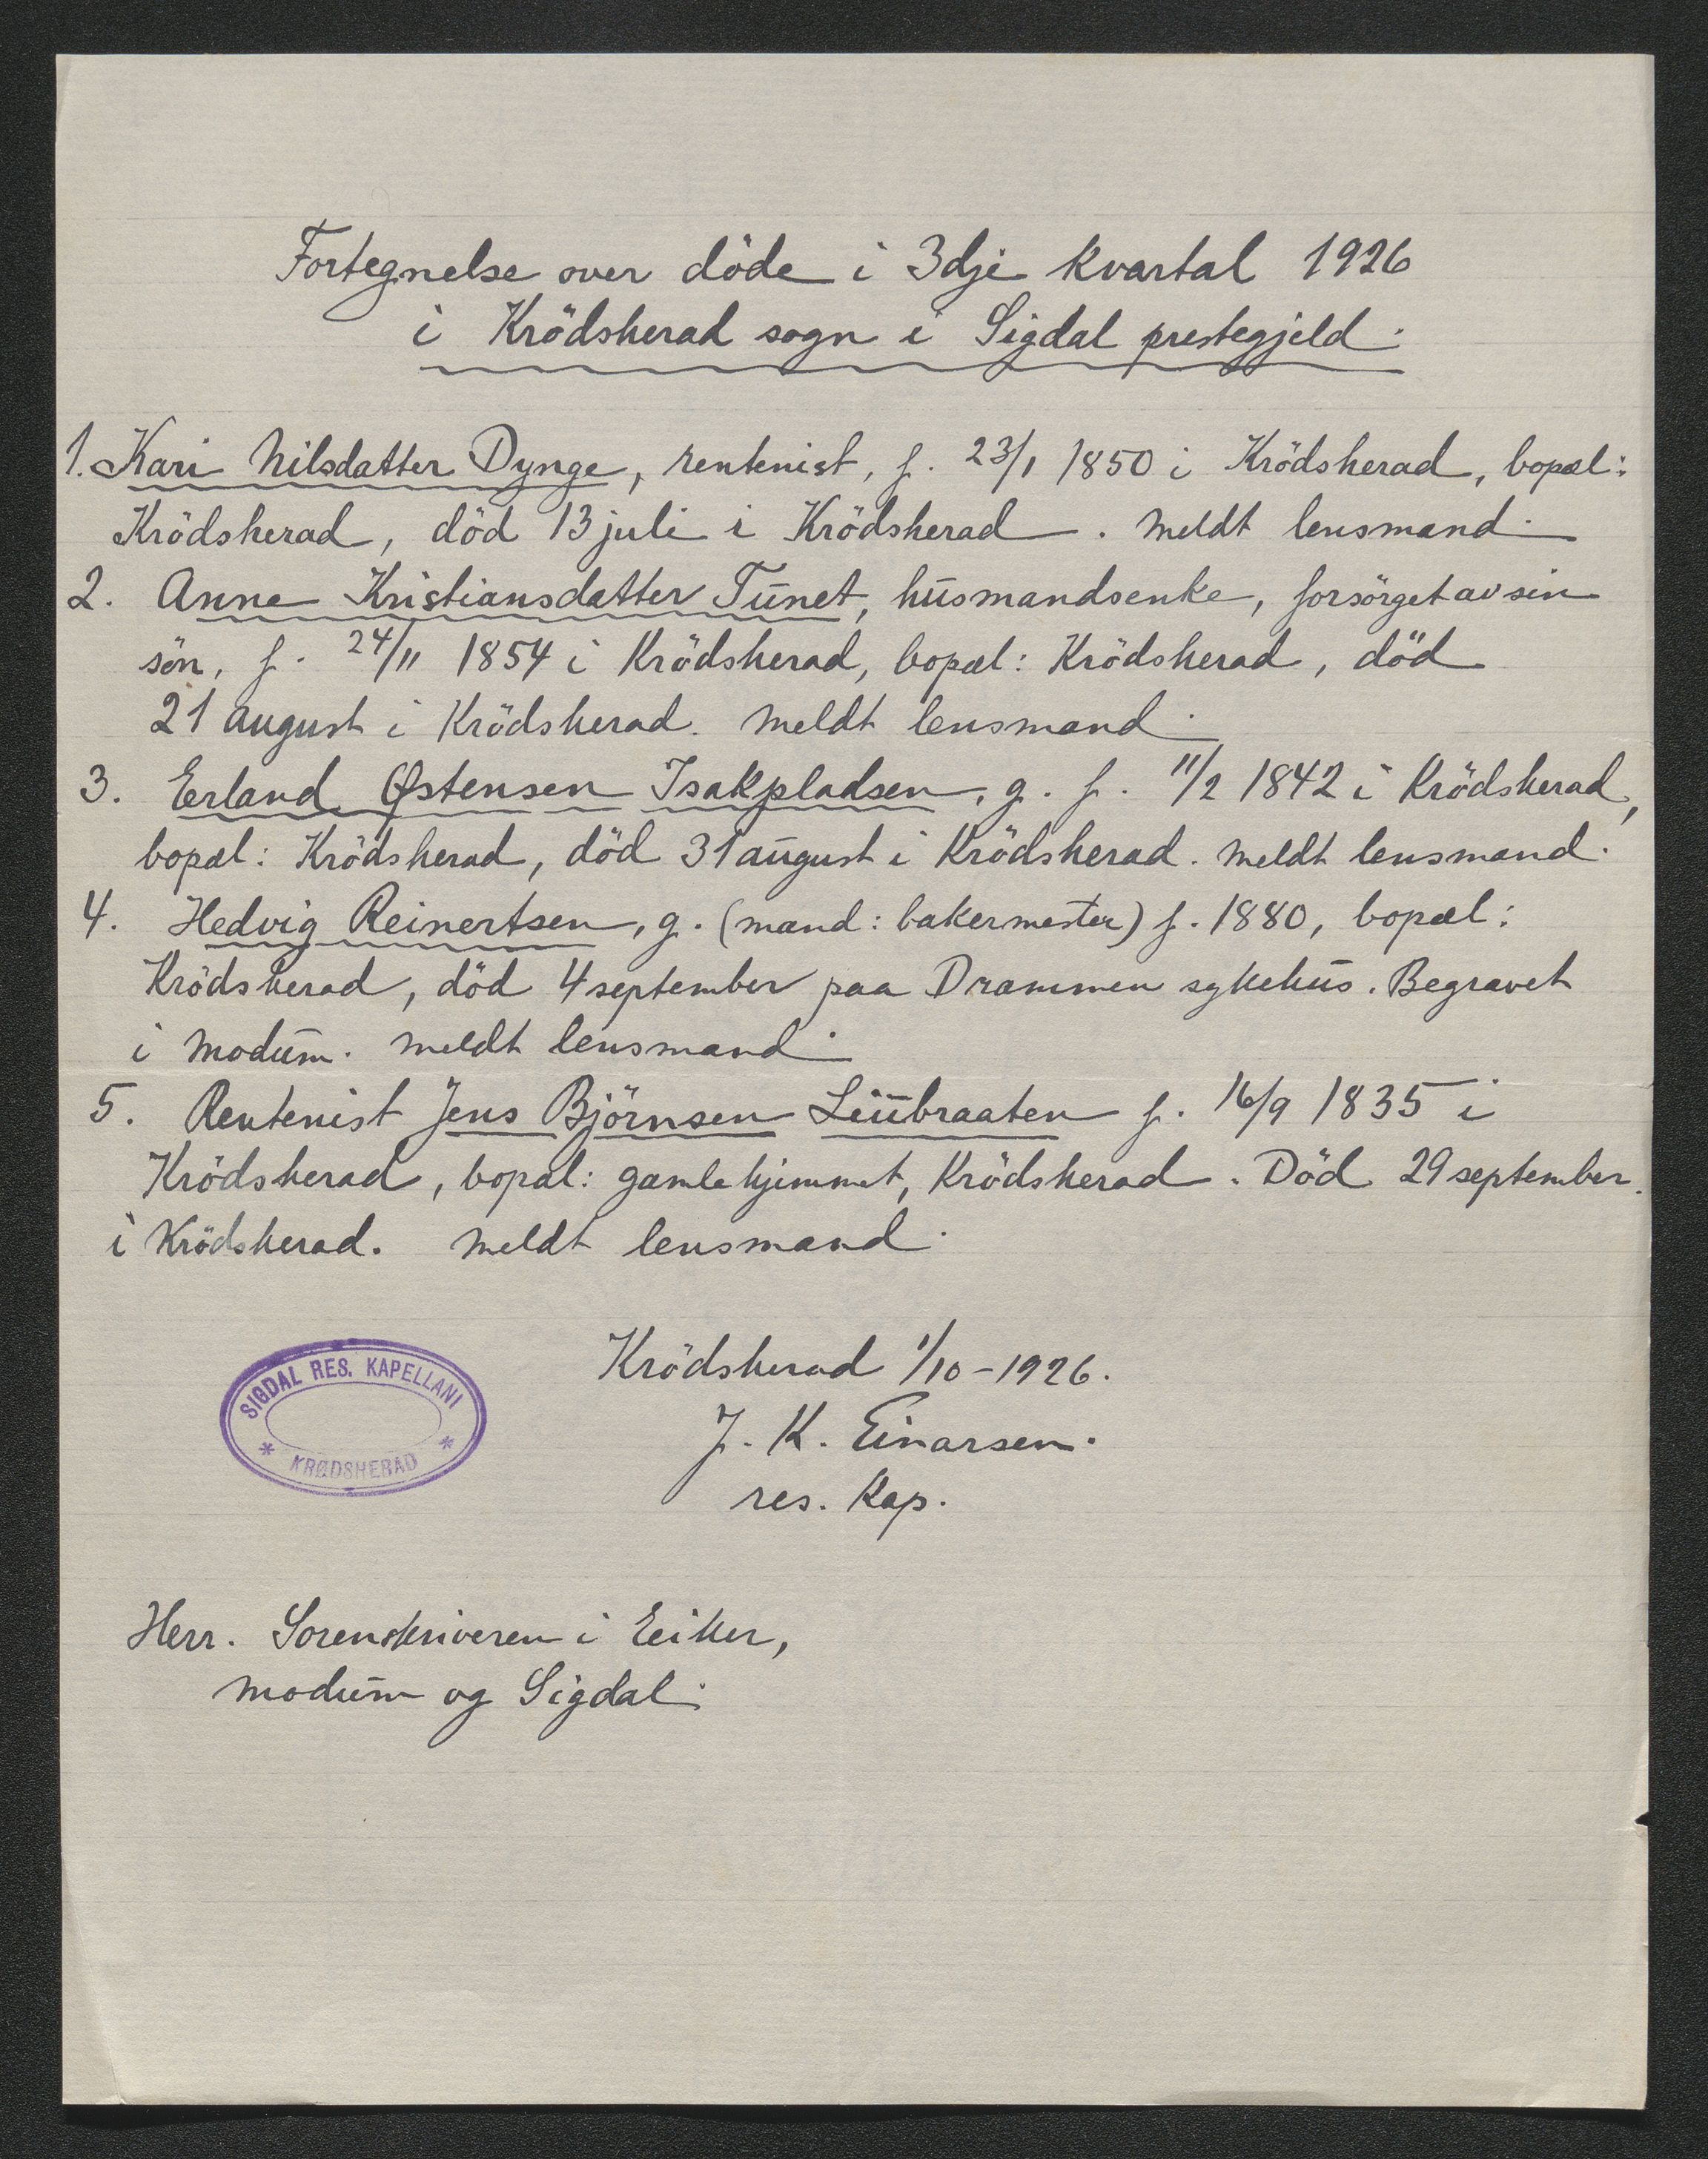 Fortegnelse over döde i 3dje kvartal 1926
i Krödsherad sogn i Sigdal prestegjeld.
1. Kari Nilsdatter Dynge, rentenist, f. 23/1 1850 i Krödsherad, bopæl:
Krödsherad, död 13 juli i Krödsherad. Meldt lensmand.
2. Anne Kristiansdatter Tunet, husmandsenke, forsörget av sin
sön, f. 24/11 1854 i Krödsherad, bopæl: Krödsherad, död
21 august i Krödsherad. Meldt lensmand.
3. Erland Østensen Isakpladsen, g. f. 11/2 1842 i Krödsherad,
bopæl: Krödsherad, död 31 august i Krödsherad. Meldt lensmand.
4. Hedvig Reinertsen, g. (mand: bakermester) f. 1880, bopæl:
Krödsherad, död 4 september paa Drammen sykehus. Begravet
i Modum. Meldt lensmand.
5. Rentenist Jens Björnsen f. 16/9 1835 i
Krödsherad, bopæl: gamlehjemmet, Krödsherad. Död 29 september
i Krödsherad. Meldt lensmand.
SIGDAL RES. KAPELLANI
* KRØDSHERAD *
Krödsherad 1/10-1926.
J. K. Einarsen.
res. Kap.
Herr. Sorenskriveren i Eiker,
Modum og Sigdal.